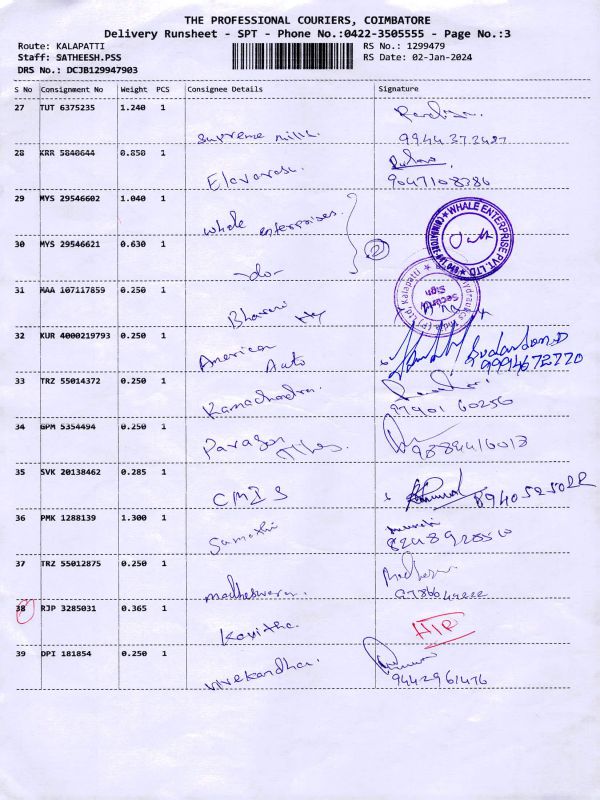 THE PROFESSIONAL COURIERS, COIMBATORE
Delivery Runsheet - SPT - Phone No.:0422-3505555 - Page No.:3
Route: KALAPATTI
RS No.: 1299479
Staff: SATHEESH.PSS
RS Date: 02-Jan-2024
DRS No.: DCJB129947903
S No Consignment No Weight PCS Consignee Details Signature
27 TUT 6375235 1.240 1
Supreme
28 KRR 5840644 0.850 1
Elavarasi.
9047108386
29 MYS 29546602 1.040 1
Whale enterprises.
WHALE ENTERPRISE PVT. LTD
30 MYS 29546621 0.630 1
-do-
2
31 MAA 107117859 0.250 1
Bharani
Kalapatti
Security
Sign
32 KUR 4000219793 0.250 1
American
Auto
9994672770
33 TRZ 55014372 0.250 1
Ramachandra.
97901 60256
34 GPM 5354494 0.250 1
Paragon
9889416013
35 SVK 20138462 0.285 1
CMIS
36 PMK 1288139 1.300 1
Sumathi
37 TRZ 55012875 0.250 1
madheswaran.
38 RJP 3285031 0.365 1
Kavitha
39 DPI 181854 0.250 1
vivekandhan.
9442961476